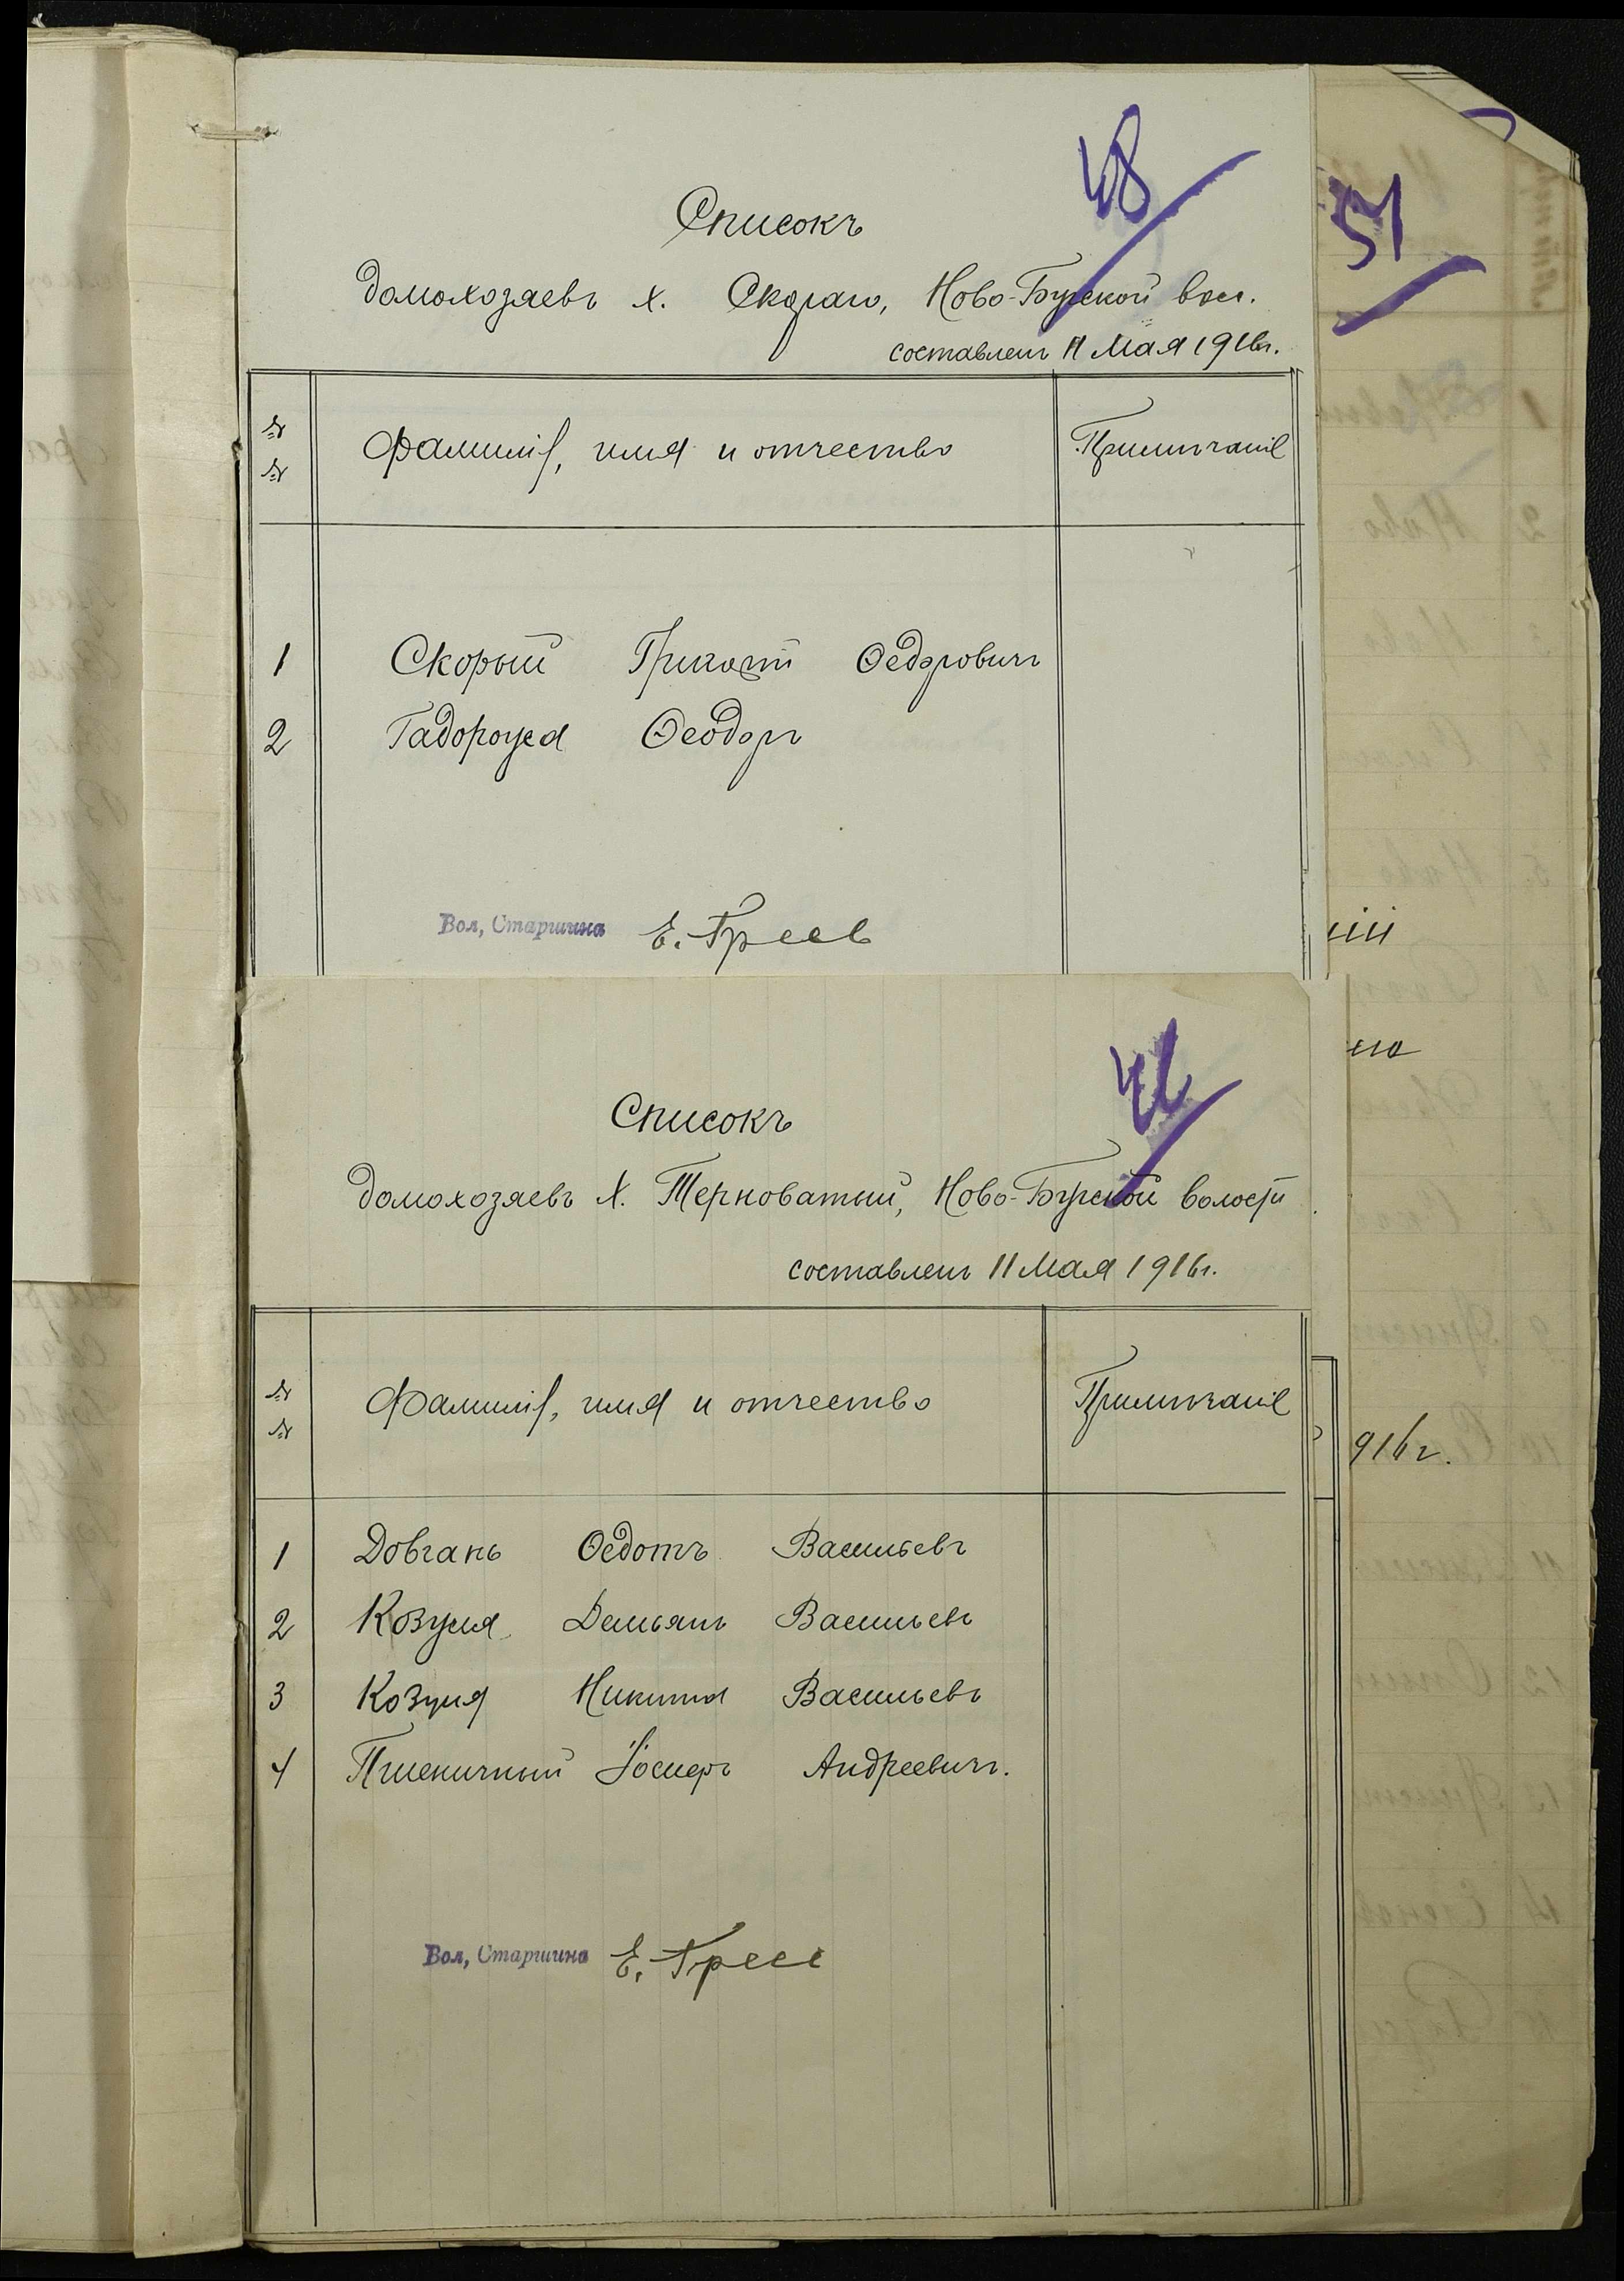 48
Списокъ
домохозяевъ х. Скораго, Ново-Бугской вол.
составленъ 11 Мая 1916г.
№ № Фамилія, имя и отчество Примѣчаніе
1 Скорый Григорій Ѳедоровичъ
2 Ѳеодоръ
Вол, Старшина Е.
Списокъ
домохозяевъ х. Терноватый, Ново-Бугской волости
составленъ 11 Мая 1916г.
№ № Фамилія, имя и отчество Примѣчаніе
1 Довгань Ѳедотъ Васильевъ
2 Козуля Демьянъ Васильевъ
3 Козуля Никита Васильевъ
4 Пшеничный Іосифъ Андреевичъ.
Вол, Старшина Е.
51
916г.